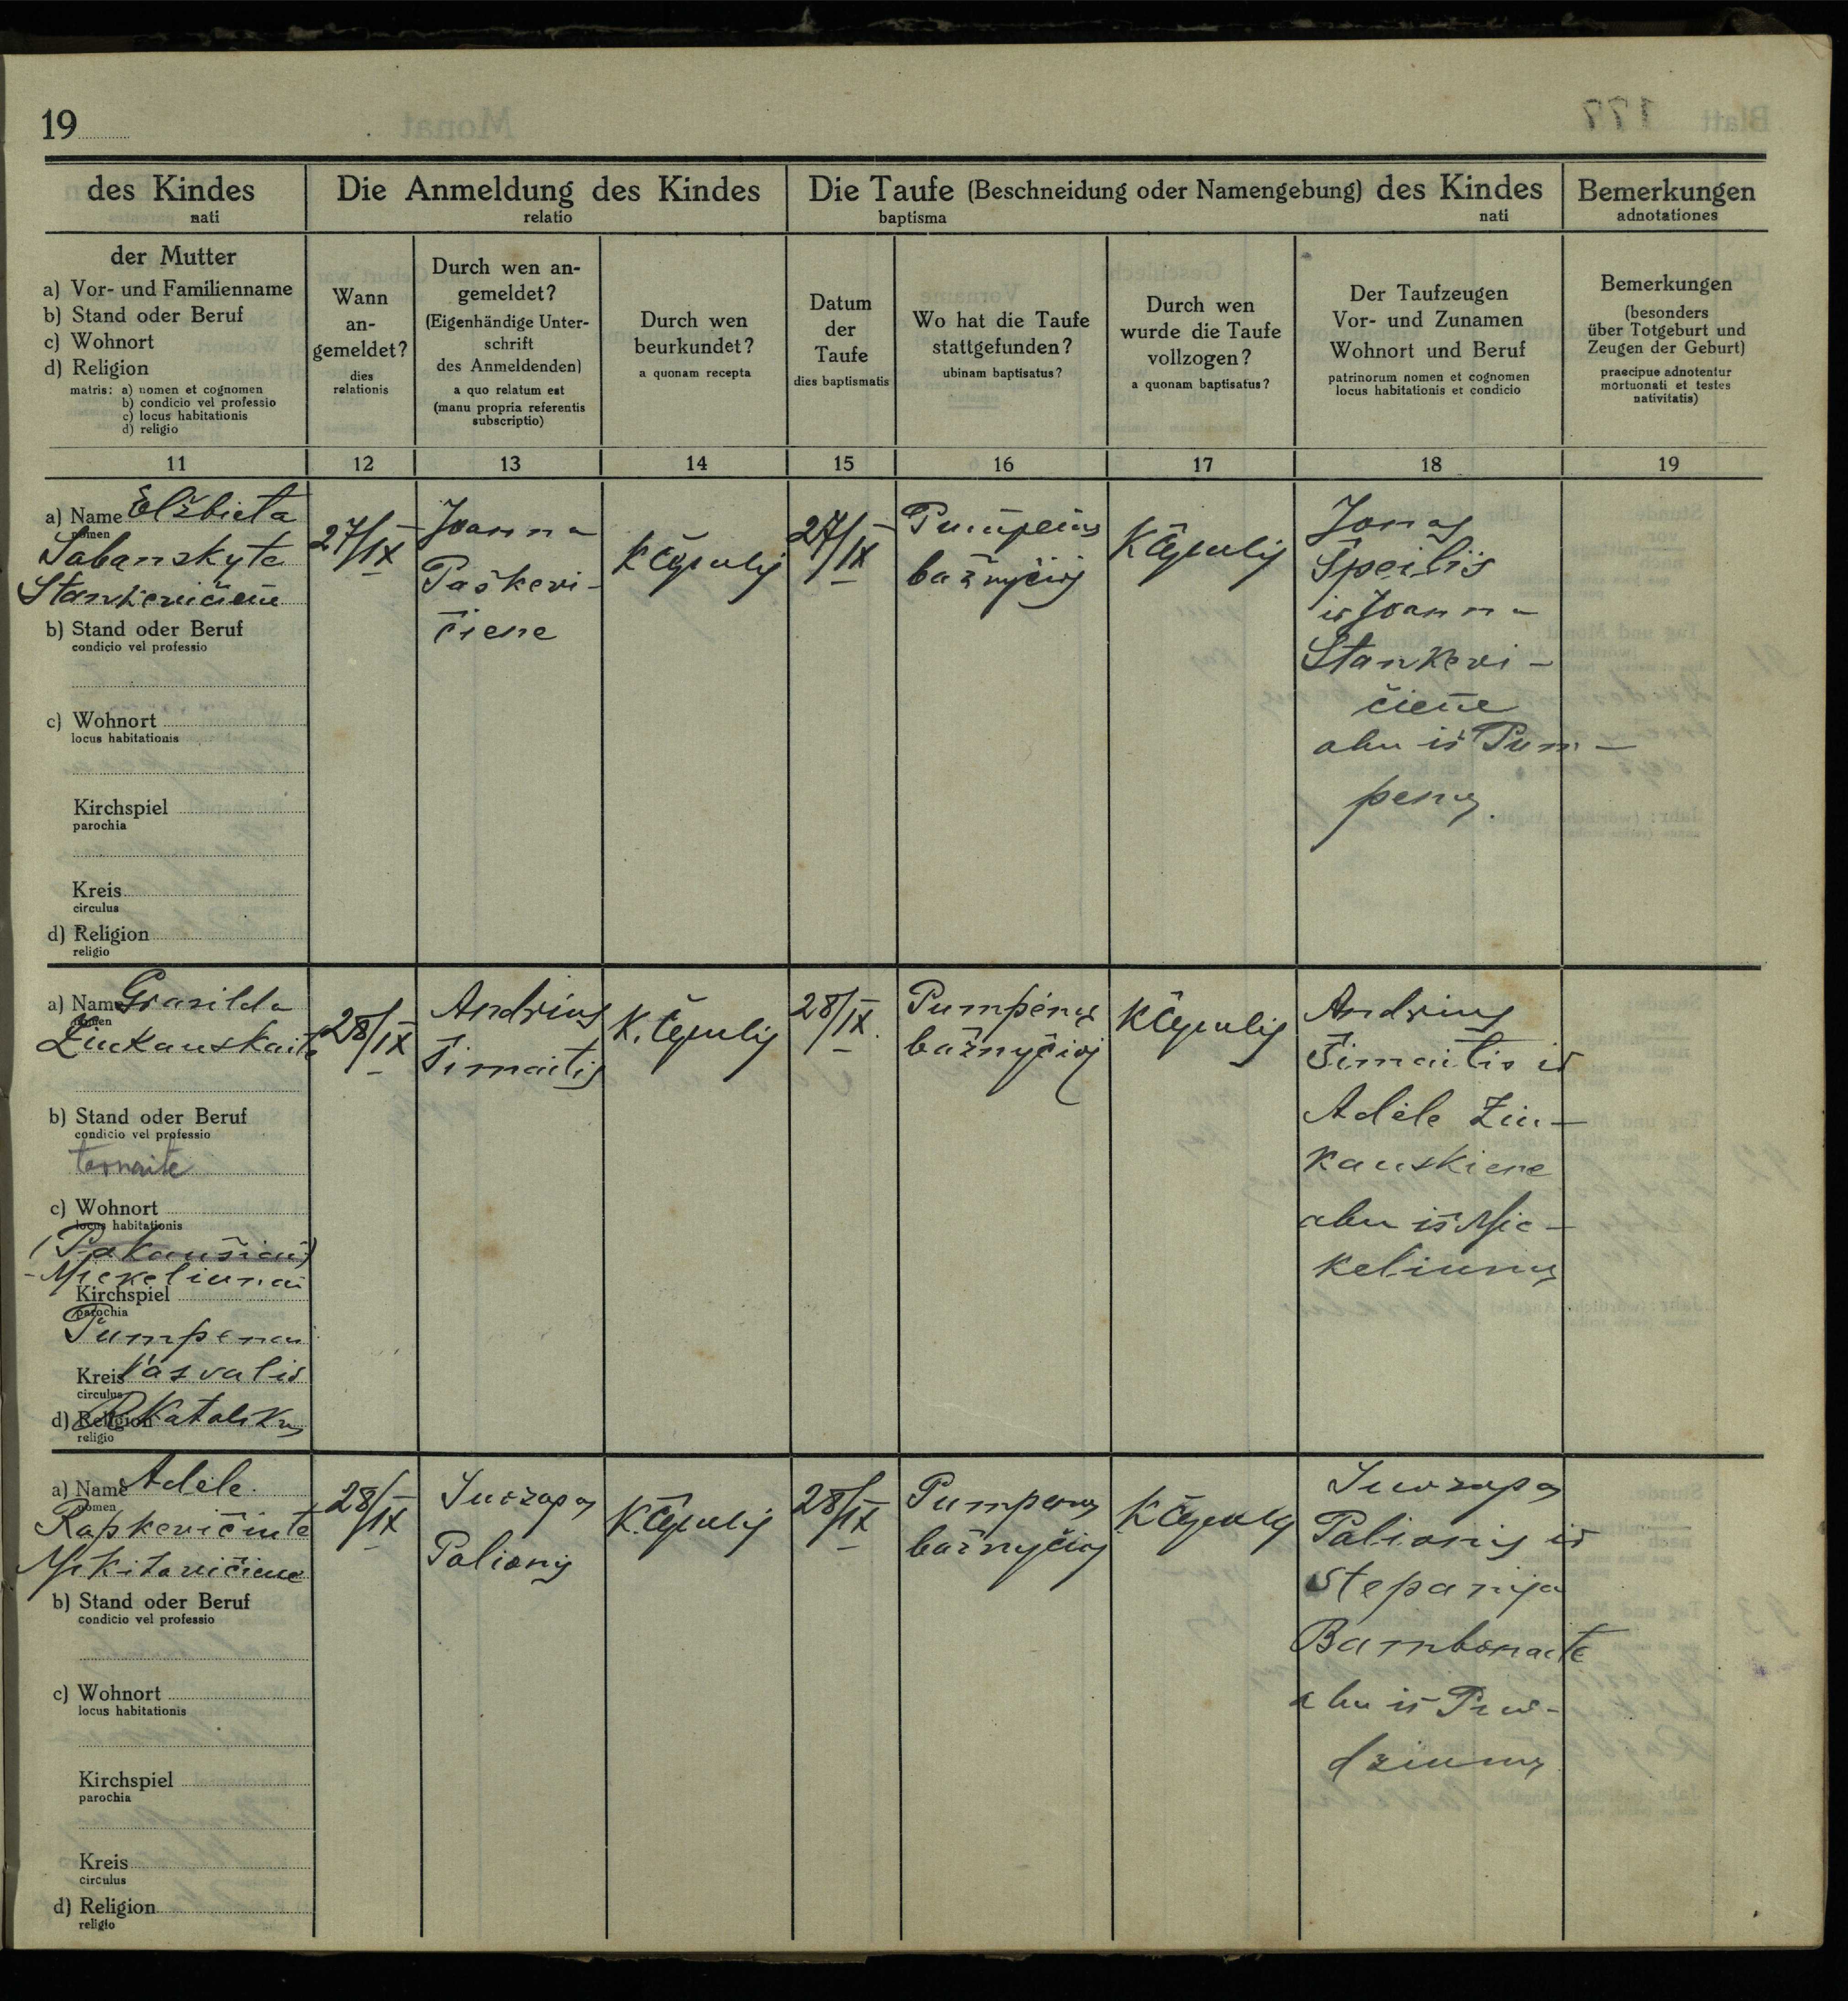 19
des Kindes
nati
Die Anmeldung des Kindes
relatio
Die Taufe (Beschneidung oder Namengebung) des Kindes
baptisma
nati
Bemerkungen
adnotationes
der Mutter
a) Vor- und Familienname
b) Stand oder Beruf
c) Wohnort
d) Religion
matris: a) nomen et cognomen
b) condicio vel professio
c) locus habitationis
d) religio
Wann
an-
gemeldet?
dies
relationis
Durch wen an-
gemeldet?
(Eigenhändige Unter-
schrift
des Anmeldenden)
a quo relatum est
(manu propria referentis
subscriptio)
Durch wen
beurkundet?
a quonam recepta
Datum
der
Taufe
dies baptismatis
Wo hat die Taufe
stattgefunden?
ubinam baptisatus?
Durch wen
wurde die Taufe
vollzogen?
a quonam baptisatus?
Der Taufzeugen
Vor- und Zunamen
Wohnort und Beruf
patrinorum nomen et cognomen
locus habitationis et condicio
Bemerkungen
(besonders
über Totgeburt und
Zeugen der Geburt)
praecipue adnotentur
mortuonati et testes
nativitatis)
11 12 13 14 15 16 17 18 19
a) Name Elžbieta
nomen
Sabanskyte
Stankevičiene
b) Stand oder Beruf
condicio vel professio
c) Wohnort
locus habitationis
Kirchspiel
parochia
Kreis
circulus
d) Religion
religio
27/IX
Joanna
Paškevi-
čiene
27/IX
bažnyčioj
Jonas
Speičiis
ir Joanna
Stankevi-
čiene
abu iš Pum-
penų.
a) Name Grasilda
nomen
Zinkauskaitė
b) Stand oder Beruf
condicio vel professio
ternaite
c) Wohnort
locus habitationis
Miekeliunai
Kirchspiel
parochia
Pumpenai
Kreis Pasvalio
circulus
d) Religion R Katalikų
religio
28/IX
Andrius
Šimaitis
28/IX.
Pumpėnų
bažnyčioj
Andrius
Šimaitis ir
Adėlė Zin-
kauskiene
abu iš Mie-
keliunų
a) Name Adėlė.
nomen
Rapkevičiutė
Mikitavičiene
b) Stand oder Beruf
condicio vel professio
c) Wohnort
locus habitationis
Kirchspiel
parochia
Kreis
circulus
d) Religion
religio
28/IX
Juozapas
Palionis
28/IX
Pumpenų
bažnyčioj
Juozapas
Palionis ir
Stepanija
Bambonaitė
abu iš